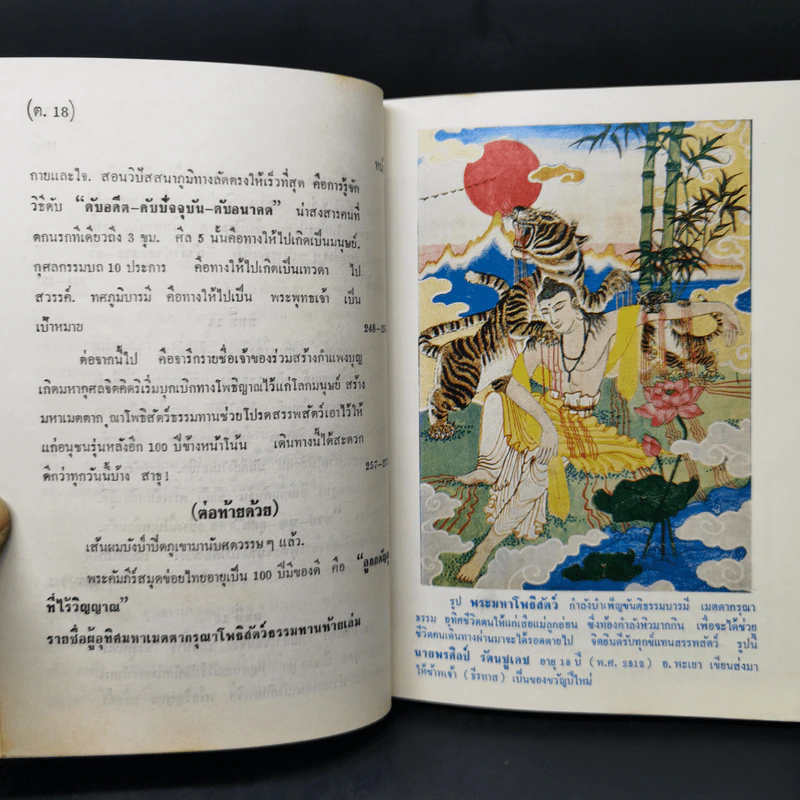 (ต. 18)
หน้
กายและใจ. สอนวิปัสสนาภูมิทางลัดตรงให้เร็วที่สุด คือการรู้จัก
วิธีดับ "ดับอดีต-ดับปัจจุบัน-ดับอนาคต" น่าสงสารคนที่
ตกนรกทีเดียวถึง 3 ขุม. ศีล 5 นั้นคือทางให้ไปเกิดเป็นมนุษย์.
กุศลกรรมบถ 10 ประการ คือทางให้ไปเกิดเป็นเทวดา ไป
สวรรค์. ทศภูมิบารมี คือทางให้ไปเป็น พระพุทธเจ้า เป็น
เป้าหมาย 248-2
ต่อจากนี้ไป คือจาริกรายชื่อเจ้าของร่วมสร้างกำแพงบุญ
เกิดมหากุศลจิตคิดริเริ่มบุกเบิกทางโพธิญาณไว้แก่โลกมนุษย์ สร้าง
มหาเมตตากรุณาโพธิสัตว์ธรรมทานช่วยโปรดสรรพสัตว์เอาไว้ให้
แก่อนุชนรุ่นหลังอีก 100 ปีข้างหน้าโน้น เดินทางนี้ได้สะดวก
ดีกว่าทุกวันนี้บ้าง สาธุ! 257-2
(ต่อท้ายด้วย)
เส้นผมบังบำปิดภูเขามานับศตวรรษๆ แล้ว.
พระคัมภีร์สมุดข่อยไทยอายุเป็น 100 ปีมีของดี คือ
ที่ไร้วิญญาณ"
รายชื่อผู้อุทิศมหาเมตตากรุณาโพธิสัตว์ธรรมทานท้ายเล่ม
รูป พระมหาโพธิสัตว์ กำลังบำเพ็ญขันติธรรมบารมี เมตตากรุณา
ธรรม อุทิศชีวิตตนให้แก่เสือแม่ลูกอ่อน ซึ่งท้องกำลังหิวมากกิน เพื่อจะได้ช่วย
ชีวิตคนเดินทางผ่านมาจะได้รอดตายไป จิตยินดีรับทุกข์แทนสรรพสัตว์ รูปนี้
นายพรศิลป์ รัตนชูเดช อายุ 18 ปี (พ.ศ. 2512) อ. พะเยา เขียนส่งมา
ให้ข้าพเจ้า (ธีรทาส) เป็นของขวัญปีใหม่